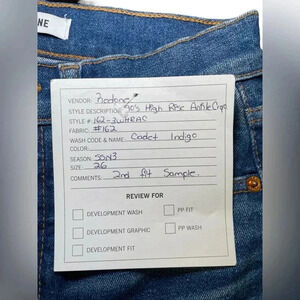 NE
VENDOR: Redone
STYLE DESCRIPTION: 90's High Rise Ankle Crop
STYLE #: 162-3WHRAC
FABRIC: #162
WASH CODE & NAME: Cadet Indigo
COLOR:
SEASON: SON3
SIZE: 26
COMMENTS: 2nd fit Sample.
REVIEW FOR
DEVELOPMENT WASH
PP FIT
DEVELOPMENT GRAPHIC
PP WASH
DEVELOPMENT FIT